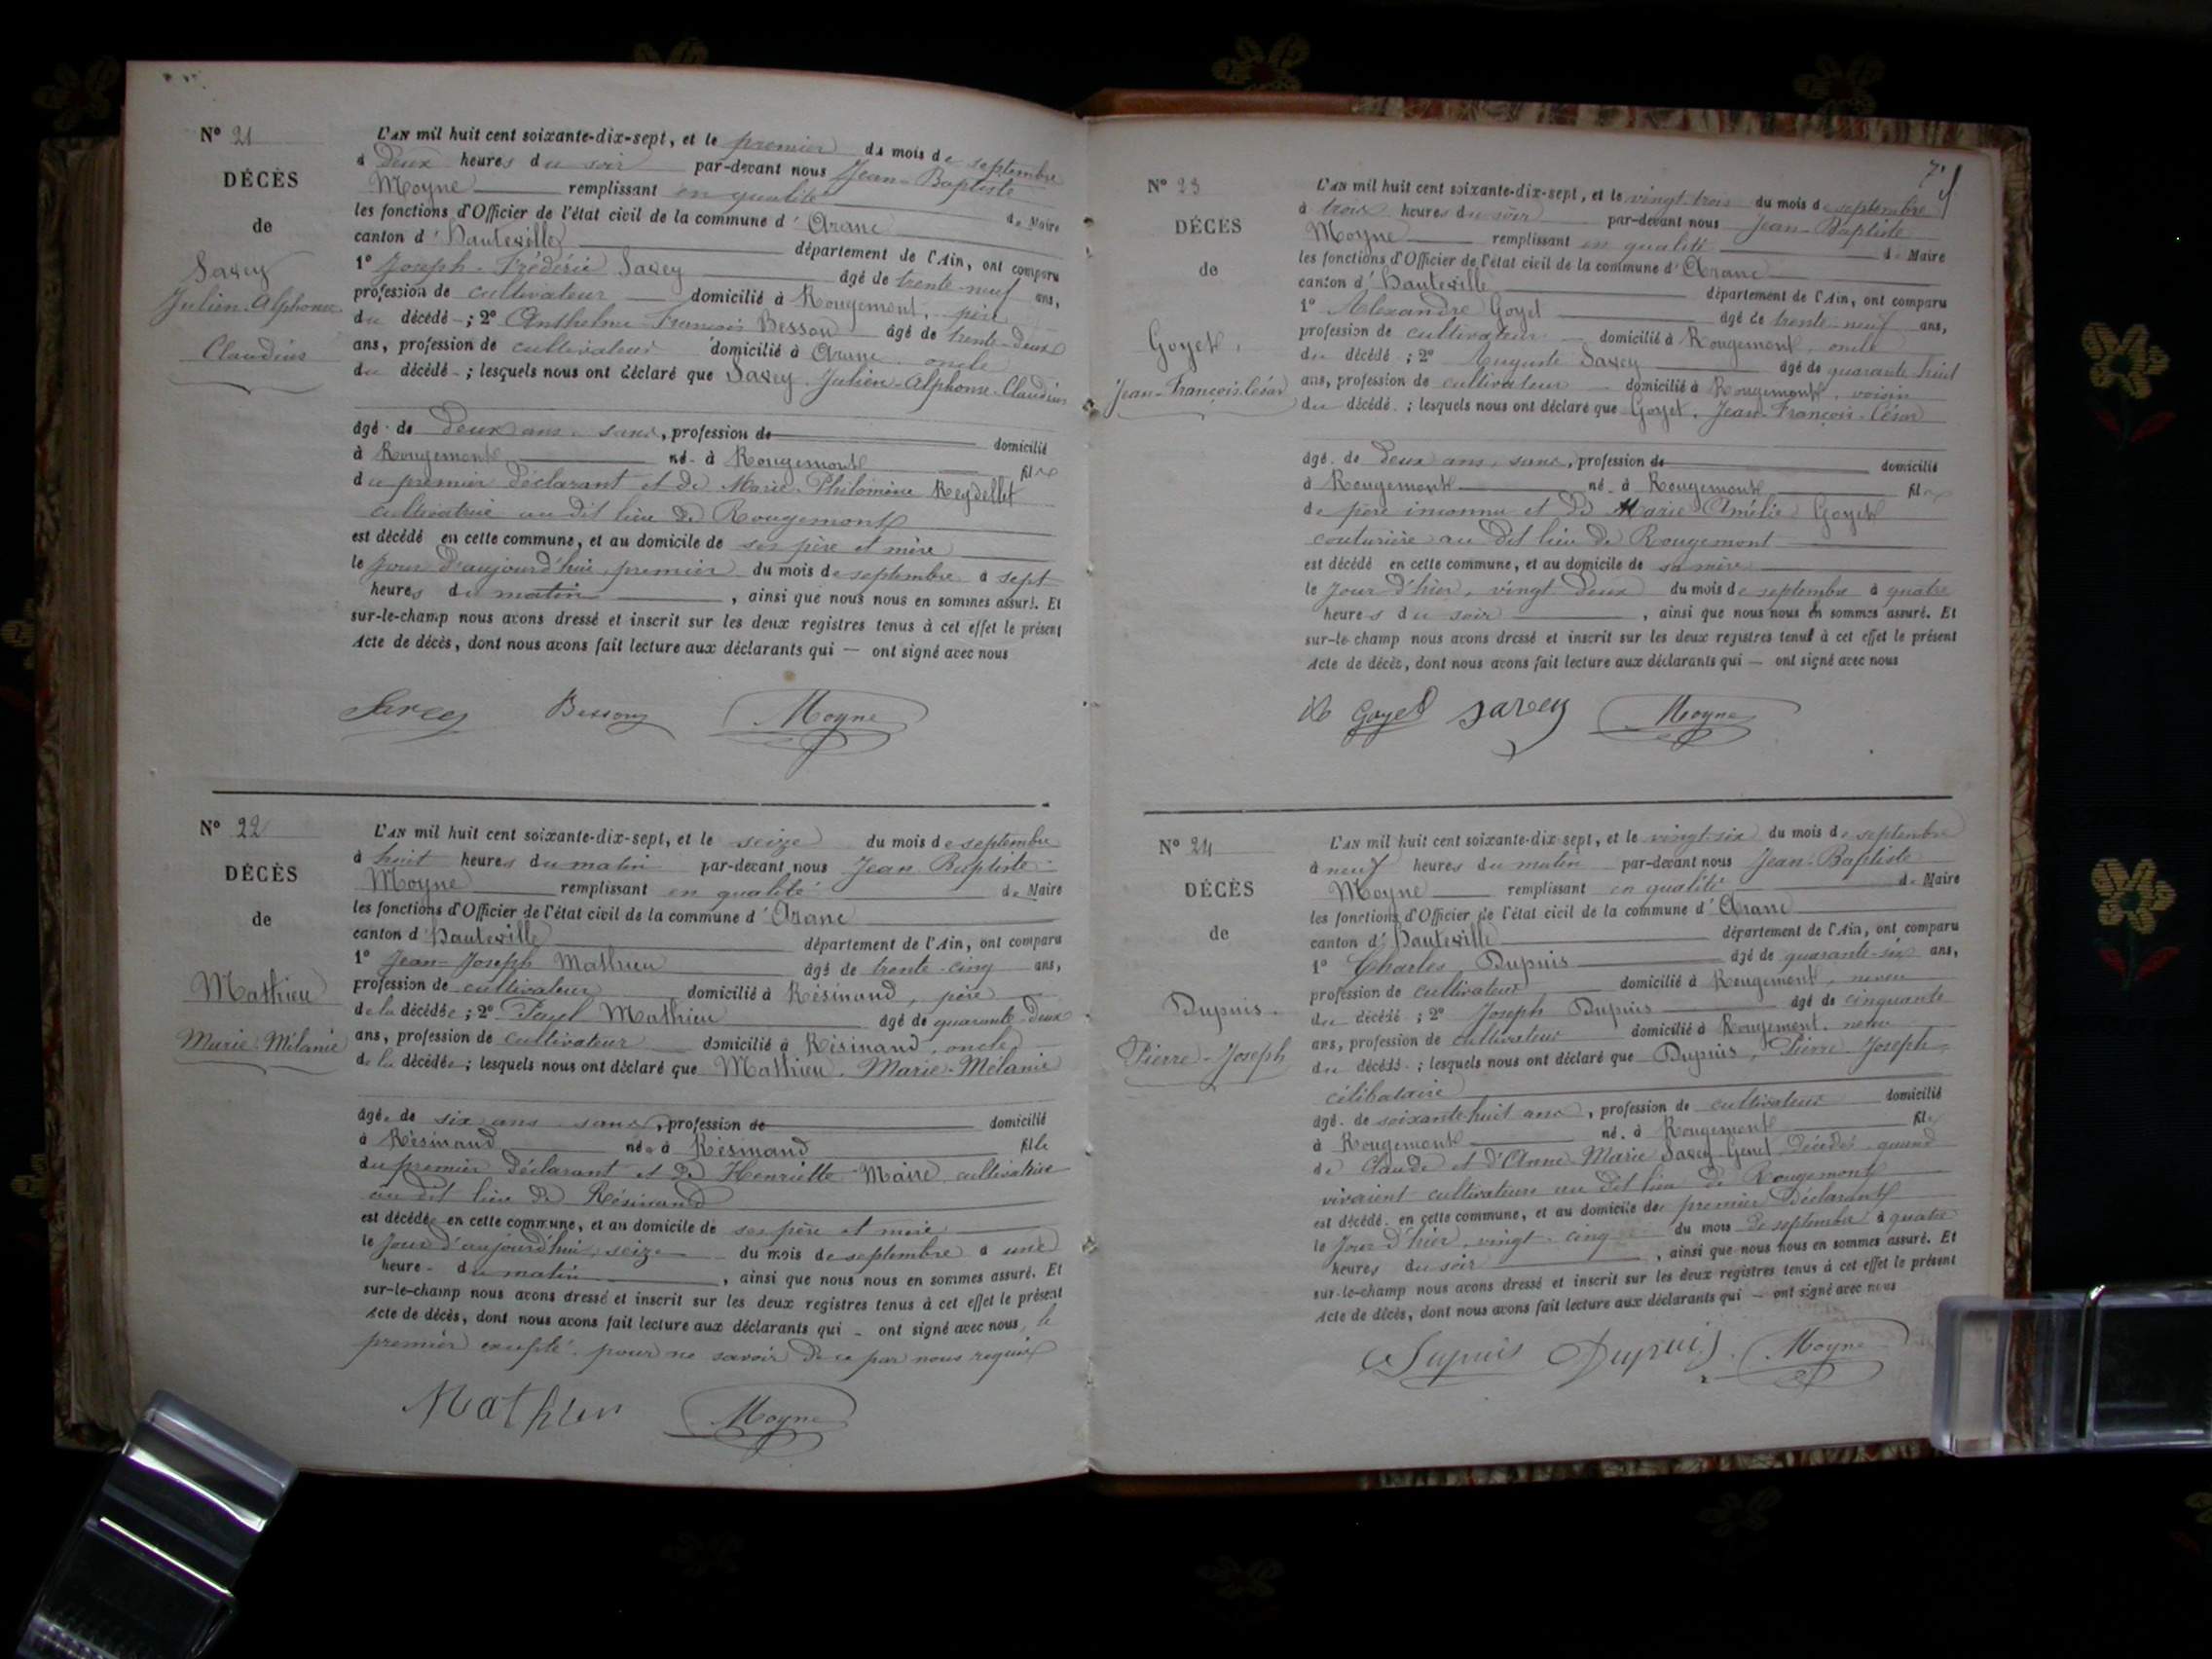 N° 21
DÉCÈS
de
Savey
Julien-Alphonse
Claudius
L'AN mil huit cent soixante-dix-sept, et le premier du mois de septembre
à Deux heures du soir par-devant nous Jean-Baptiste
Moyne remplissant en qualité de Maire
les fonctions d'Officier de l'état civil de la commune d'Aranc
canton d'Hauteville département de l'Ain, ont comparu
1° Joseph-Frédéric Savey âgé de trente-neuf ans,
profession de cultivateur domicilié à Rougemont, père
du décédé; 2° Anthelme François Besson âgé de trente-deux
ans, profession de cultivateur domicilié à Aranc, oncle
du décédé; lesquels nous ont déclaré que Savey, Julien-Alphonse-Claudius
âgé de Deux ans, sans, profession de domicilié
à Rougemont né à Rougemont fils
du premier déclarant et de Marie-Philomène Reydellet
cultivatrice au dit lieu de Rougemont
est décédé en cette commune, et au domicile de ses père et mère
le jour d'aujourd'hui, premier du mois de septembre à sept
heures du matin, ainsi que nous nous en sommes assuré. Et
sur-le-champ nous avons dressé et inscrit sur les deux registres tenus à cet effet le présent
Acte de décès, dont nous avons fait lecture aux déclarants qui — ont signé avec nous
Savey Besson Moyne
N° 22
DÉCÈS
de
Mathieu
Marie-Mélanie
L'AN mil huit cent soixante-dix-sept, et le seize du mois de septembre
à huit heures du matin par-devant nous Jean-Baptiste
Moyne remplissant en qualité de Maire
les fonctions d'Officier de l'état civil de la commune d'Aranc
canton d'Hauteville département de l'Ain, ont comparu
1° Jean-Joseph Mathieu âgé de trente-cinq ans,
profession de cultivateur domicilié à Résinand, père
de la décédée; 2° Mathieu âgé de quarante-deux
ans, profession de cultivateur domicilié à Résinand, oncle
de la décédée; lesquels nous ont déclaré que Mathieu, Marie-Mélanie
âgé de six ans sans, profession de domicilié
à Résinand née à Résinand fille
du premier déclarant et de Henriette Maire, cultivatrice
au dit lieu de Résinand
est décédée en cette commune, et au domicile de ses père et mère
le jour d'aujourd'hui, seize du mois de septembre à une
heure du matin, ainsi que nous nous en sommes assuré. Et
sur-le-champ nous avons dressé et inscrit sur les deux registres tenus à cet effet le présent
Acte de décès, dont nous avons fait lecture aux déclarants qui — ont signé avec nous, le
premier excepté pour ne savoir de ce par nous requis
Mathieu Moyne
N° 23
DÉCÈS
de
Goyet,
Jean-François-César
L'AN mil huit cent soixante-dix-sept, et le vingt trois du mois de septembre
à trois heures du soir par-devant nous Jean-Baptiste
Moyne remplissant en qualité de Maire
les fonctions d'Officier de l'état civil de la commune d'Aranc
canton d'Hauteville département de l'Ain, ont comparu
1° Alexandre Goyet âgé de trente-neuf ans,
profession de cultivateur domicilié à Rougemont, oncle
du décédé; 2° Auguste Savey âgé de quarante huit
ans, profession de cultivateur domicilié à Rougemont, voisin
du décédé; lesquels nous ont déclaré que Goyet, Jean-François-César
âgé de Deux ans, sans, profession de domicilié
à Rougemont né à Rougemont fils
de père inconnu et de Marie Amélie Goyet
couturière au dit lieu de Rougemont
est décédé en cette commune, et au domicile de sa mère
le jour d'hier, vingt-deux du mois de septembre à quatre
heures du soir, ainsi que nous nous en sommes assuré. Et
sur-le-champ nous avons dressé et inscrit sur les deux registres tenus à cet effet le présent
Acte de décès, dont nous avons fait lecture aux déclarants qui — ont signé avec nous
Goyet Savey Moyne
N° 24
DÉCÈS
de
Dupuis
Pierre-Joseph
L'AN mil huit cent soixante-dix-sept, et le vingt-six du mois de septembre
à neuf heures du matin par-devant nous Jean-Baptiste
Moyne remplissant en qualité de Maire
les fonctions d'Officier de l'état civil de la commune d'Aranc
canton d'Hauteville département de l'Ain, ont comparu
1° Charles Dupuis âgé de quarante-six ans,
profession de cultivateur domicilié à Rougemont, neveu
du décédé; 2° Joseph Dupuis âgé de cinquante
ans, profession de cultivateur domicilié à Rougemont, neveu
du décédé; lesquels nous ont déclaré que Dupuis, Pierre-Joseph,
célibataire
âgé de soixante huit ans, profession de cultivateur domicilié
à Rougemont né à Rougemont fils
de Claude et d'Anne-Marie Savey-Genet, Décédés, quand
vivaient cultivateurs au dit lieu de Rougemont
est décédé en cette commune, et au domicile du premier déclarant
le jour d'hier, vingt-cinq du mois de septembre à quatre
heures du soir, ainsi que nous nous en sommes assuré. Et
sur-le-champ nous avons dressé et inscrit sur les deux registres tenus à cet effet le présent
Acte de décès, dont nous avons fait lecture aux déclarants qui — ont signé avec nous
Dupuis Dupuis Moyne